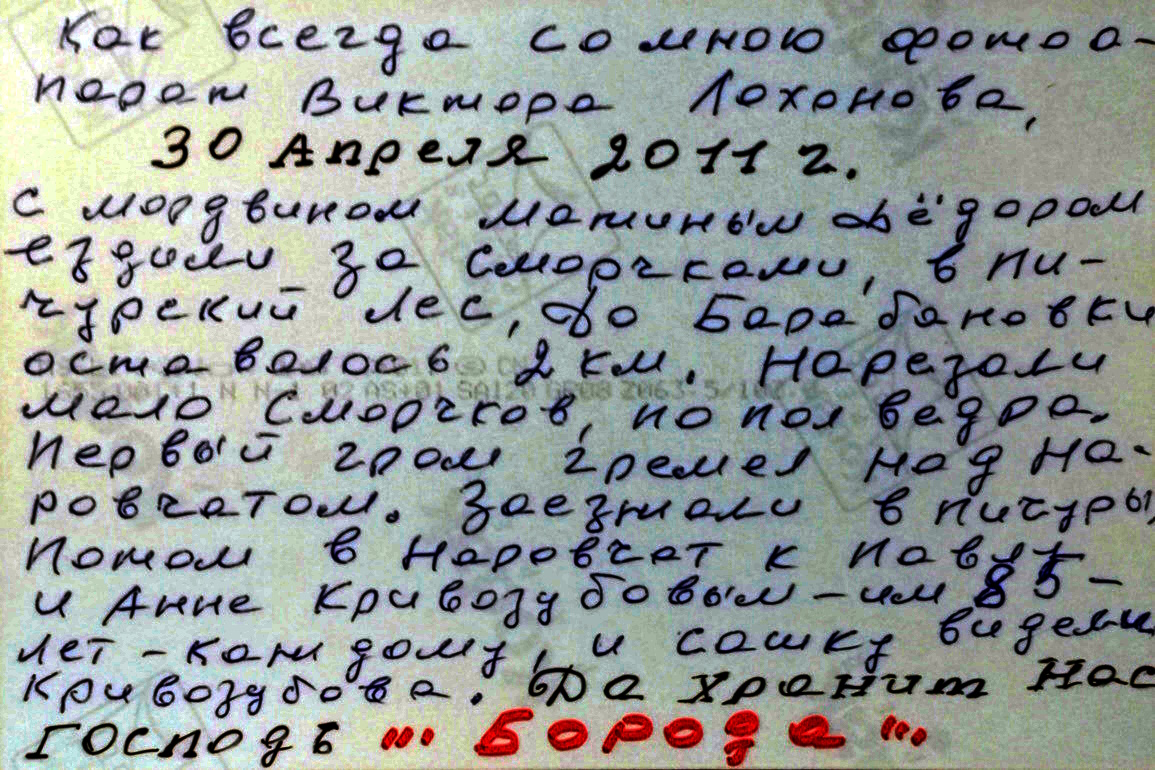 Как всегда со мною фотоа-
парат Виктора Лохонова,
30 Апреля 2011 г.
с мордвином Матиным Фёдором
ездили за Сморчками, в Пи-
чурский лес, до Барабановки
оставалось 2 км. Нарезали
мало Сморчков, по пол ведра.
Первый гром гремел над На-
ровчатом. Заезжали в Пичуры,
Потом в Наровчат к Павлу
и Анне Кривозубовым - им 85 -
лет - каждому, и сашку видели
Кривозубова. Да хранит Нас
ГОСПОДЬ "" Борода ""